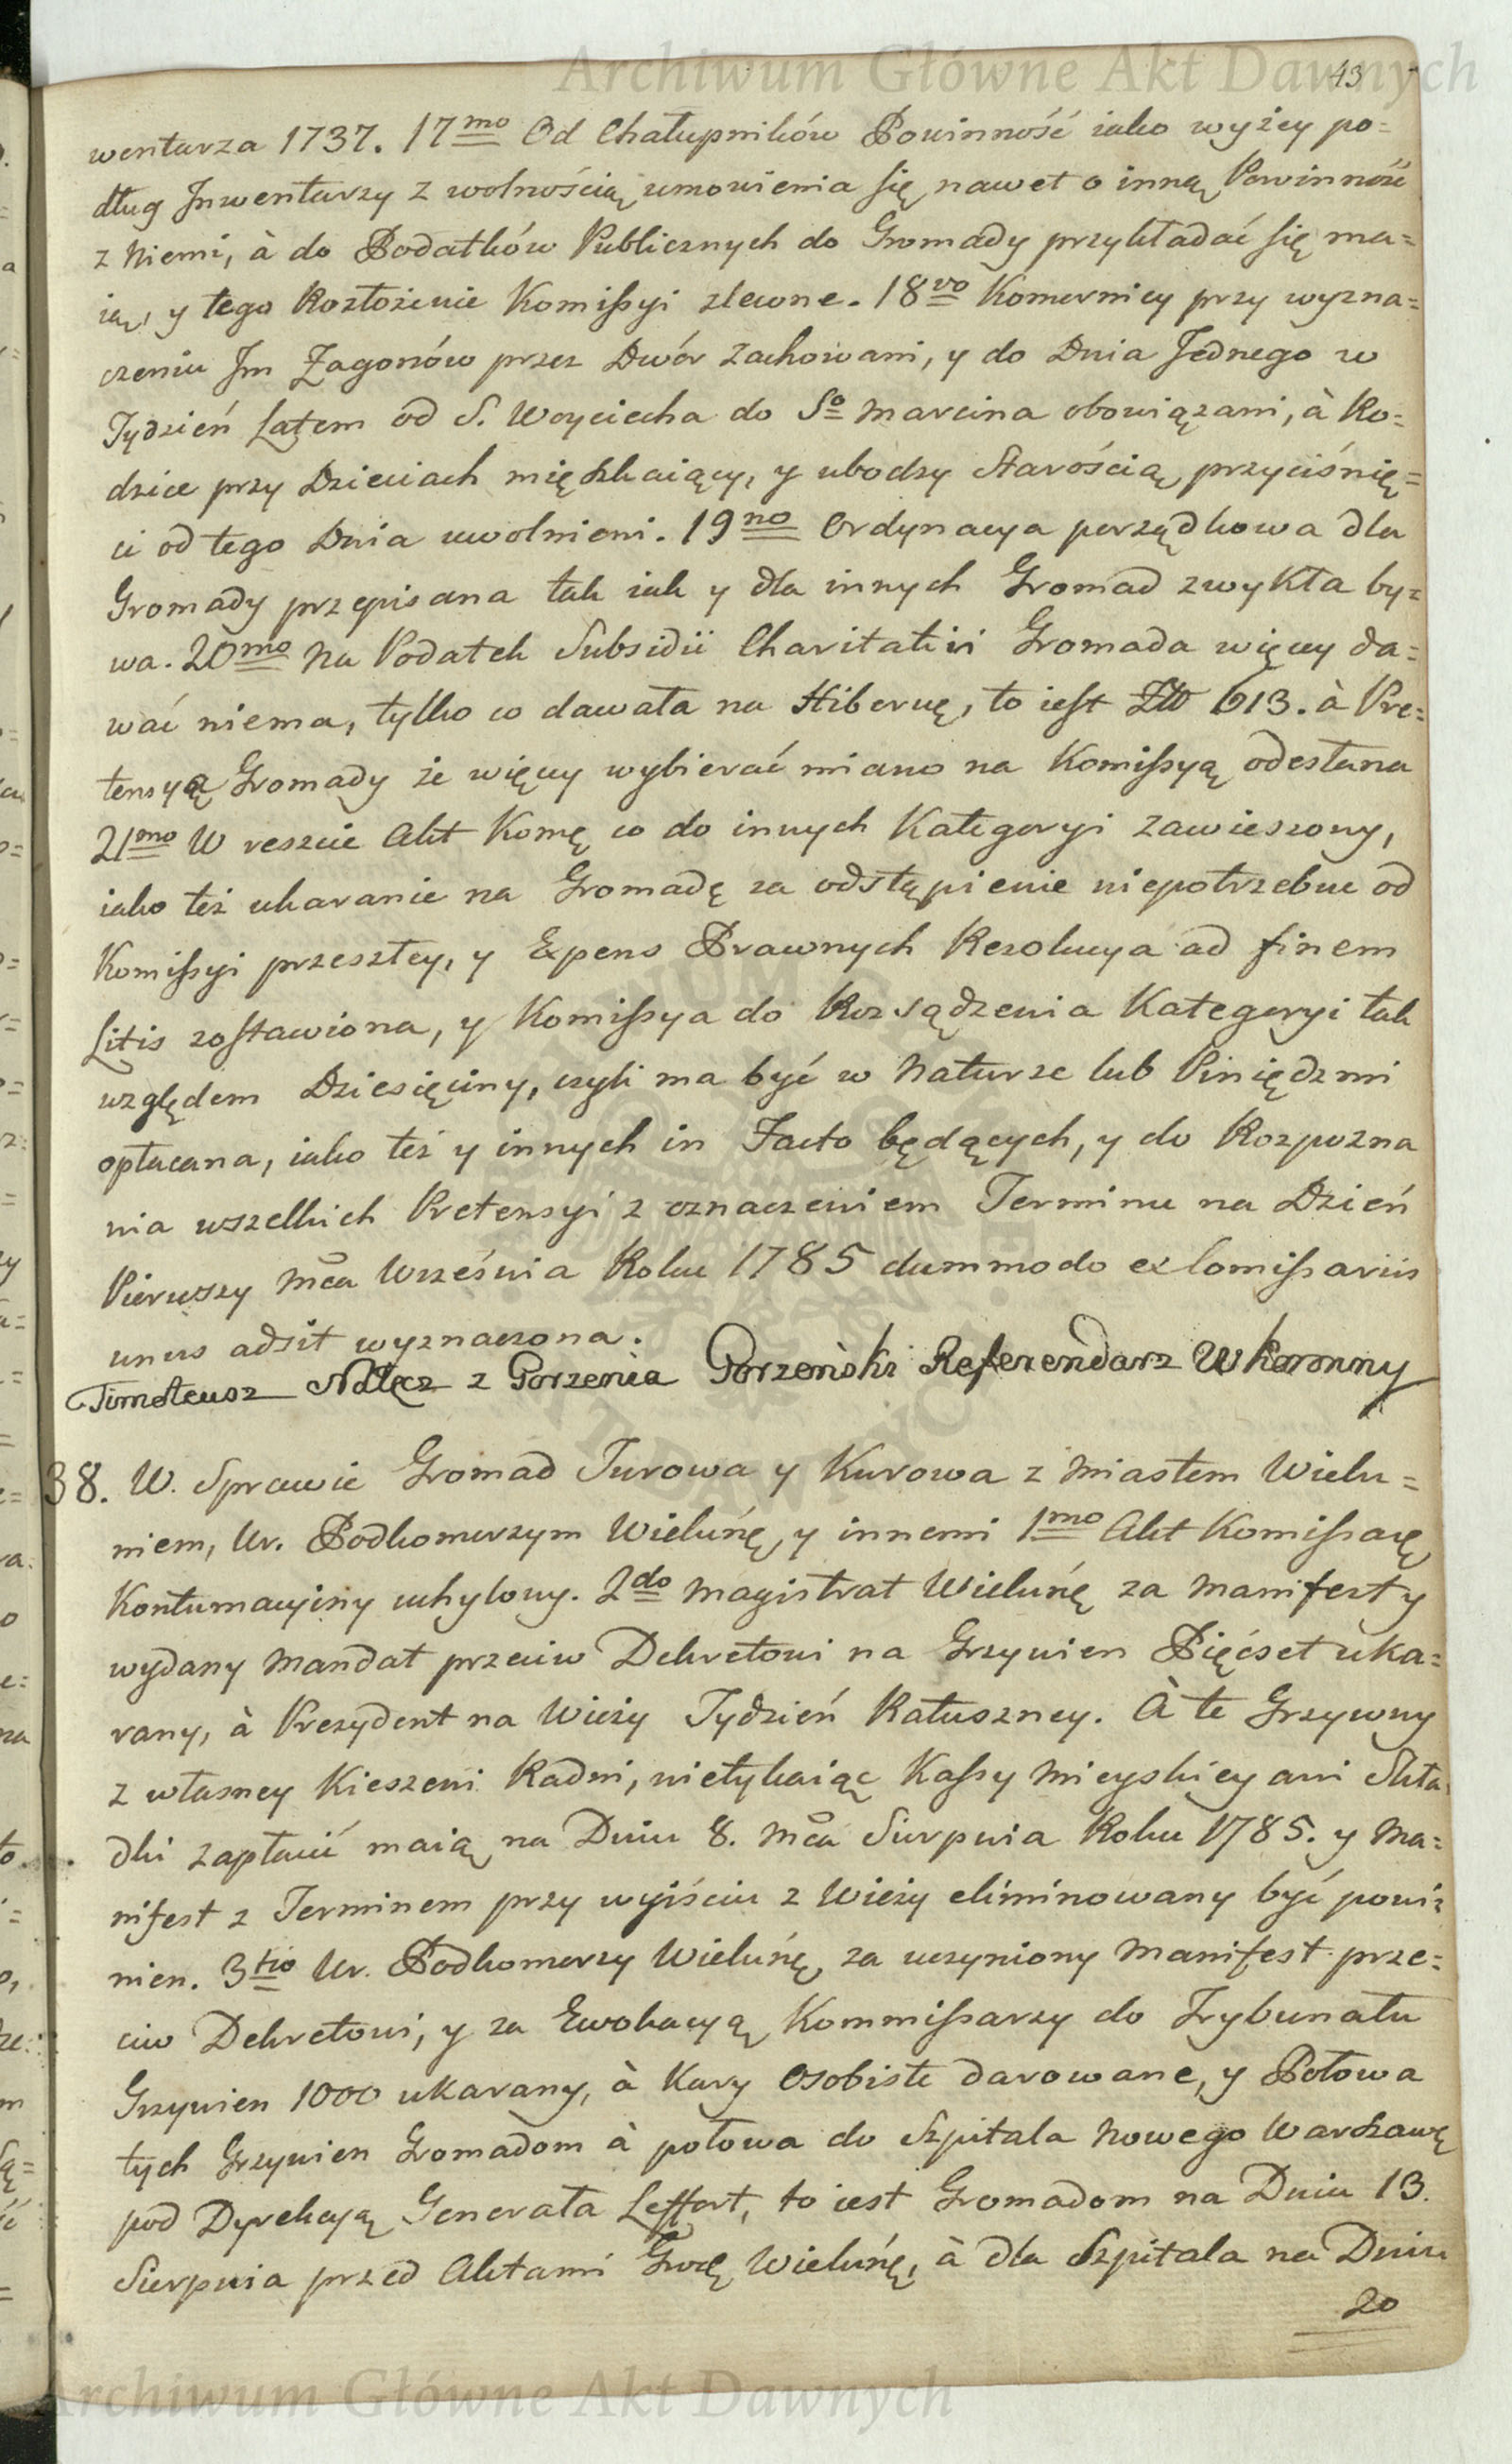 Archiwum Główne Akt Dawnych
43
wentarza 1737. 17mo Od Chałupników Powinność iako wyżey po=
dług Jnwentarzy z wolnością umowienia się nawet o inną Powinność
z Niemi, à do Podatków Publicznych do Gromady przykładać się ma=
ią, y tego Rozłożenie Komißyi zlewne. 18vo Komornicy przy wyzna=
czeniu Jm Zagonów przez Dwór zachowani, y do Dnia Jednego w
Tydzień Latem od S. Woyciecha do So Marcina obowiązani, à Ro=
dzice przy Dzieciach mięszkaiący, y ubodzy Starością przyciśnię=
ci od tego Dnia uwolnieni. 19no Ordynacya porządkowa dla
Gromady przepisana tak iak y dla innych Gromad zwykła by=
wa. 20mo Na Podatek Subsidii Charitativi Gromada więcy da=
wać niema, tylko co dawała na Hibernę, to iest Złło 613. à Pre=
tensyą Gromady że więcy wybierać miano na Komißyą odesłana
21mo W reszcie Akt Komę co do innych Kategoryi zawieszony,
iako też ukaranie na Gromadę za odstąpienie niepotrzebne od
Komißyi przeszłey, y Expens Prawnych Rezolucya ad finem
Litis zostawiona, y Komißya do Rozsądzenia Kategoryi tak
względem Dziesięciny, czyli ma być w Naturze lub Piniędzmi
opłacana, iako też y innych in Facto będących, y do Rozpozna
nia wszelkich Pretensyi z oznaczeniem Terminu na Dzień
Pierwszy Mca Września Roku 1785 dummodo ex Comißariis
unus adsit wyznaczona.
Timoteusz Nałęcz z Gorzenia Gorzeński Referendarz W Koronny
38. W. Sprawie Gromad Turowa y Kurowa z Miastem Wielu=
niem, Ur. Podkomorzym Wieluńę, y innemi 1mo Akt Komißarę
Kontumacyiny uchylony. 2do Magistrat Wieluńę za Manifest y
wydany Mandat przeciw Dekretowi na Grzywien Pięćset uka=
rany, à Prezydent na Wieży Tydzień Ratuszney. À te Grzywny
z własney Kieszeni Radni, nietykaiąc Kaßy Mieyskiey ani Skła
dki zapłacić maią na Dniu 8. Mca Sierpnia Roku 1785. y Ma=
nifest z Terminem przy wyiściu z Wieży eliminowany być powi=
nien. 3tio Ur. Podkomorzy Wieluńę, za uczyniony Manifest prze=
ciw Dekretowi, y za Ewokacyą Kommißarzy do Trybunału
Grzywien 1000 ukarany, à Kary Osobiste darowane, y Połowa
tych Grzywien Gromadom à połowa do Szpitala Nowego Warszawę
pod Dyrekcyą Generała Leffort, to iest Gromadom na Dniu 13.
Sierpnia przed Aktami Grodę Wieluńę, à dla Szpitala na Dniu
20
Archiwum Główne Akt Dawnych